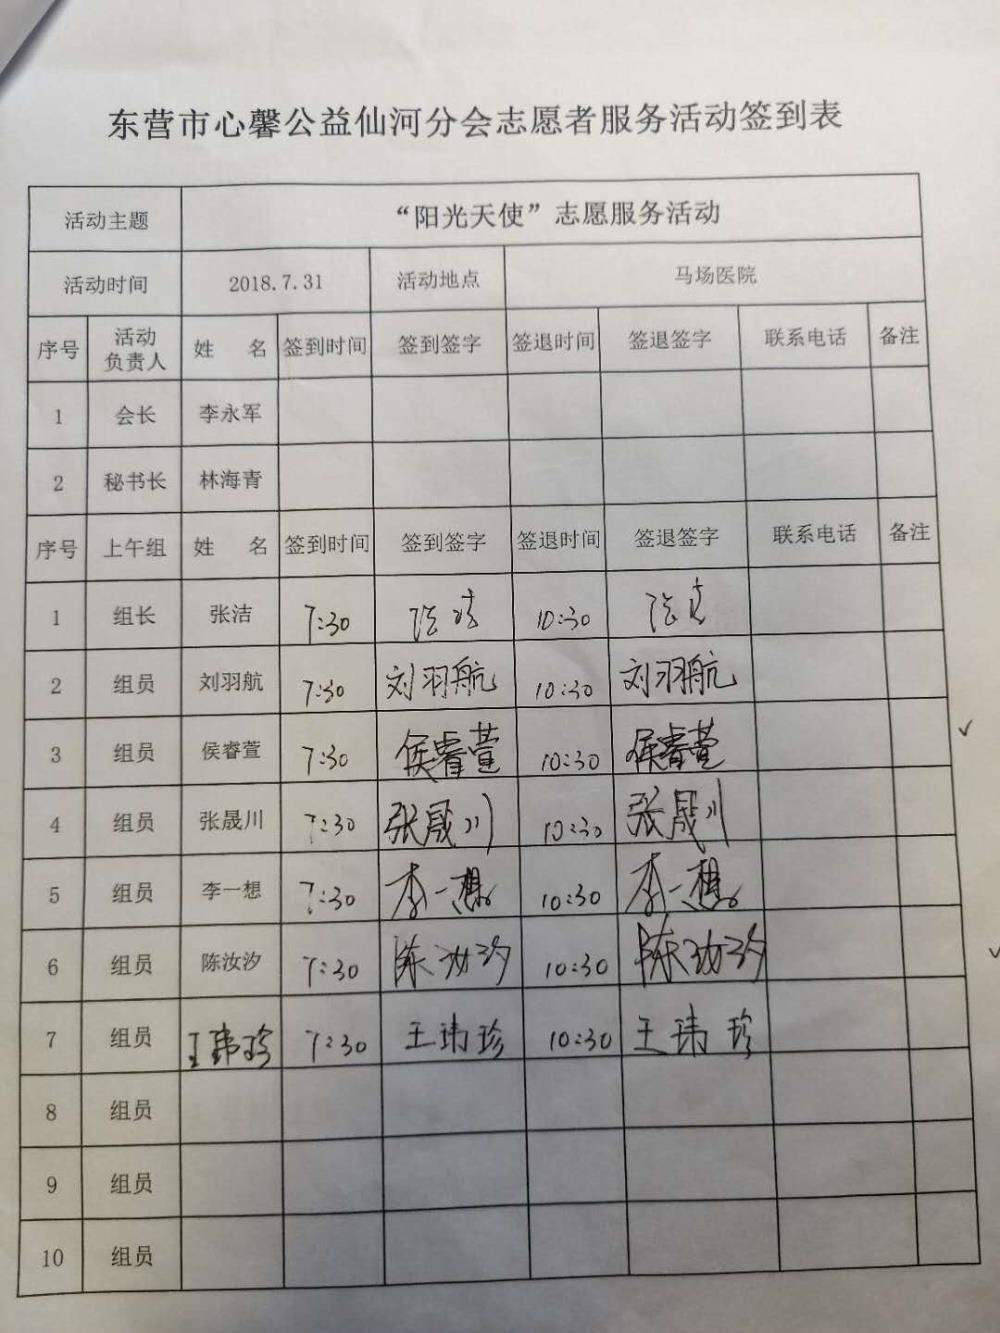 东营市心馨公益仙河分会志愿者服务活动签到表
活动主题 “阳光天使”志愿服务活动
活动时间 2018.7.31 活动地点 马场医院
序号 活动负责人 姓 名 签到时间 签到签字 签退时间 签退签字 联系电话 备注
1 会长 李永军
2 秘书长 林海青
序号 上午组 姓 名 签到时间 签到签字 签退时间 签退签字 联系电话 备注
1 组长 张洁 7:30 10:30
2 组员 刘羽航 7:30 刘羽航 10:30 刘羽航
3 组员 侯睿萱 7:30 侯睿萱 10:30 侯睿萱
4 组员 张晟川 7:30 张晟川 10:30 张晟川
5 组员 李一想 7:30 李一想 10:30 李一想
6 组员 陈汝汐 7:30 陈汝汐 10:30 陈汝汐
7 组员 王玮珍 7:30 王玮珍 10:30 王玮珍
8 组员
9 组员
10 组员